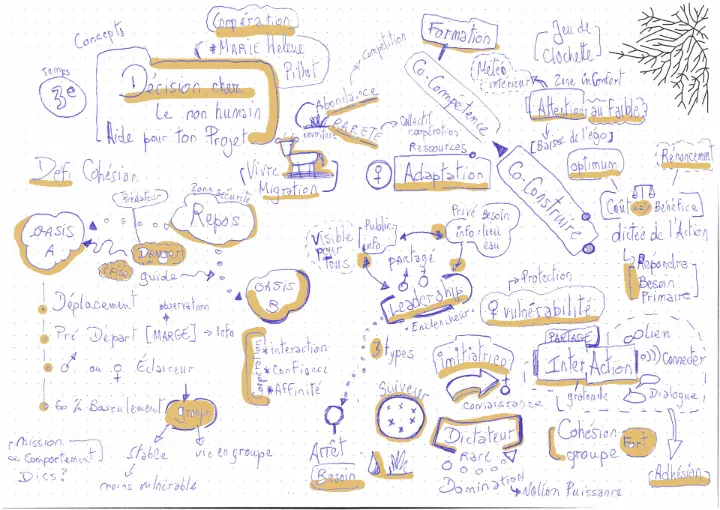 Concepts
Temps
3e
1) Décision chez
Le non humain
Aide pour ton Projet
Coopération
* MARIE Helene
Pillot
Compétition
Abondance
RARETÉ
Collectif
coopération
Ressources
Vivre
Migration
Formation
Co-Compétence
Co-Construire
Adaptation
Météo
intérieur
Jeu de
Clochette
Zone inconfort
Attention au faible
Baisse de l'égo
optimum
Rénoncement
Coût Bénéfice
dictée de l'Action
Repondre
Besoin
Primaire
Défi Cohésion
OASIS
A
Prédateur
Zone Sécurité
Repos
Danger
guide
OASIS
B
Déplacement
observation
Pré Départ [MARGE] → Info
♂ ou ♀ Éclaireur
60% Basculement
groupe
stable
vie en groupe
moins vulnérable
mission
Comportement
Dics?
* interaction
* Confiance
* Affinité
Visible
pour
Tous
Public
info
Privé Besoin
info: lieu
eau
partage
Leadership
Enclencheur
3 types
Arrêt
Besoin
Suiveur
initiatrice
connaissance
Dictateur
Rare
Domination
→ Notion Puissance
→ Protection
♀ vulnérabilité
PARTAGE
Inter Action
Lien
Connecter
Dialogue
Cohésion
groupe
Fort
Adhésion